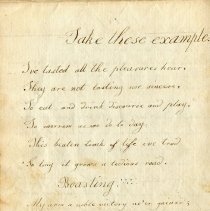 Take these example
I've tasted all the pleasures here.
They are not lasting nor sincere.
To eat and drink discourse and play.
To morrow as we do to day.
This beaten track of life we trod
So long it grows a tedious road.
Boasting.
a noble victory ne'er